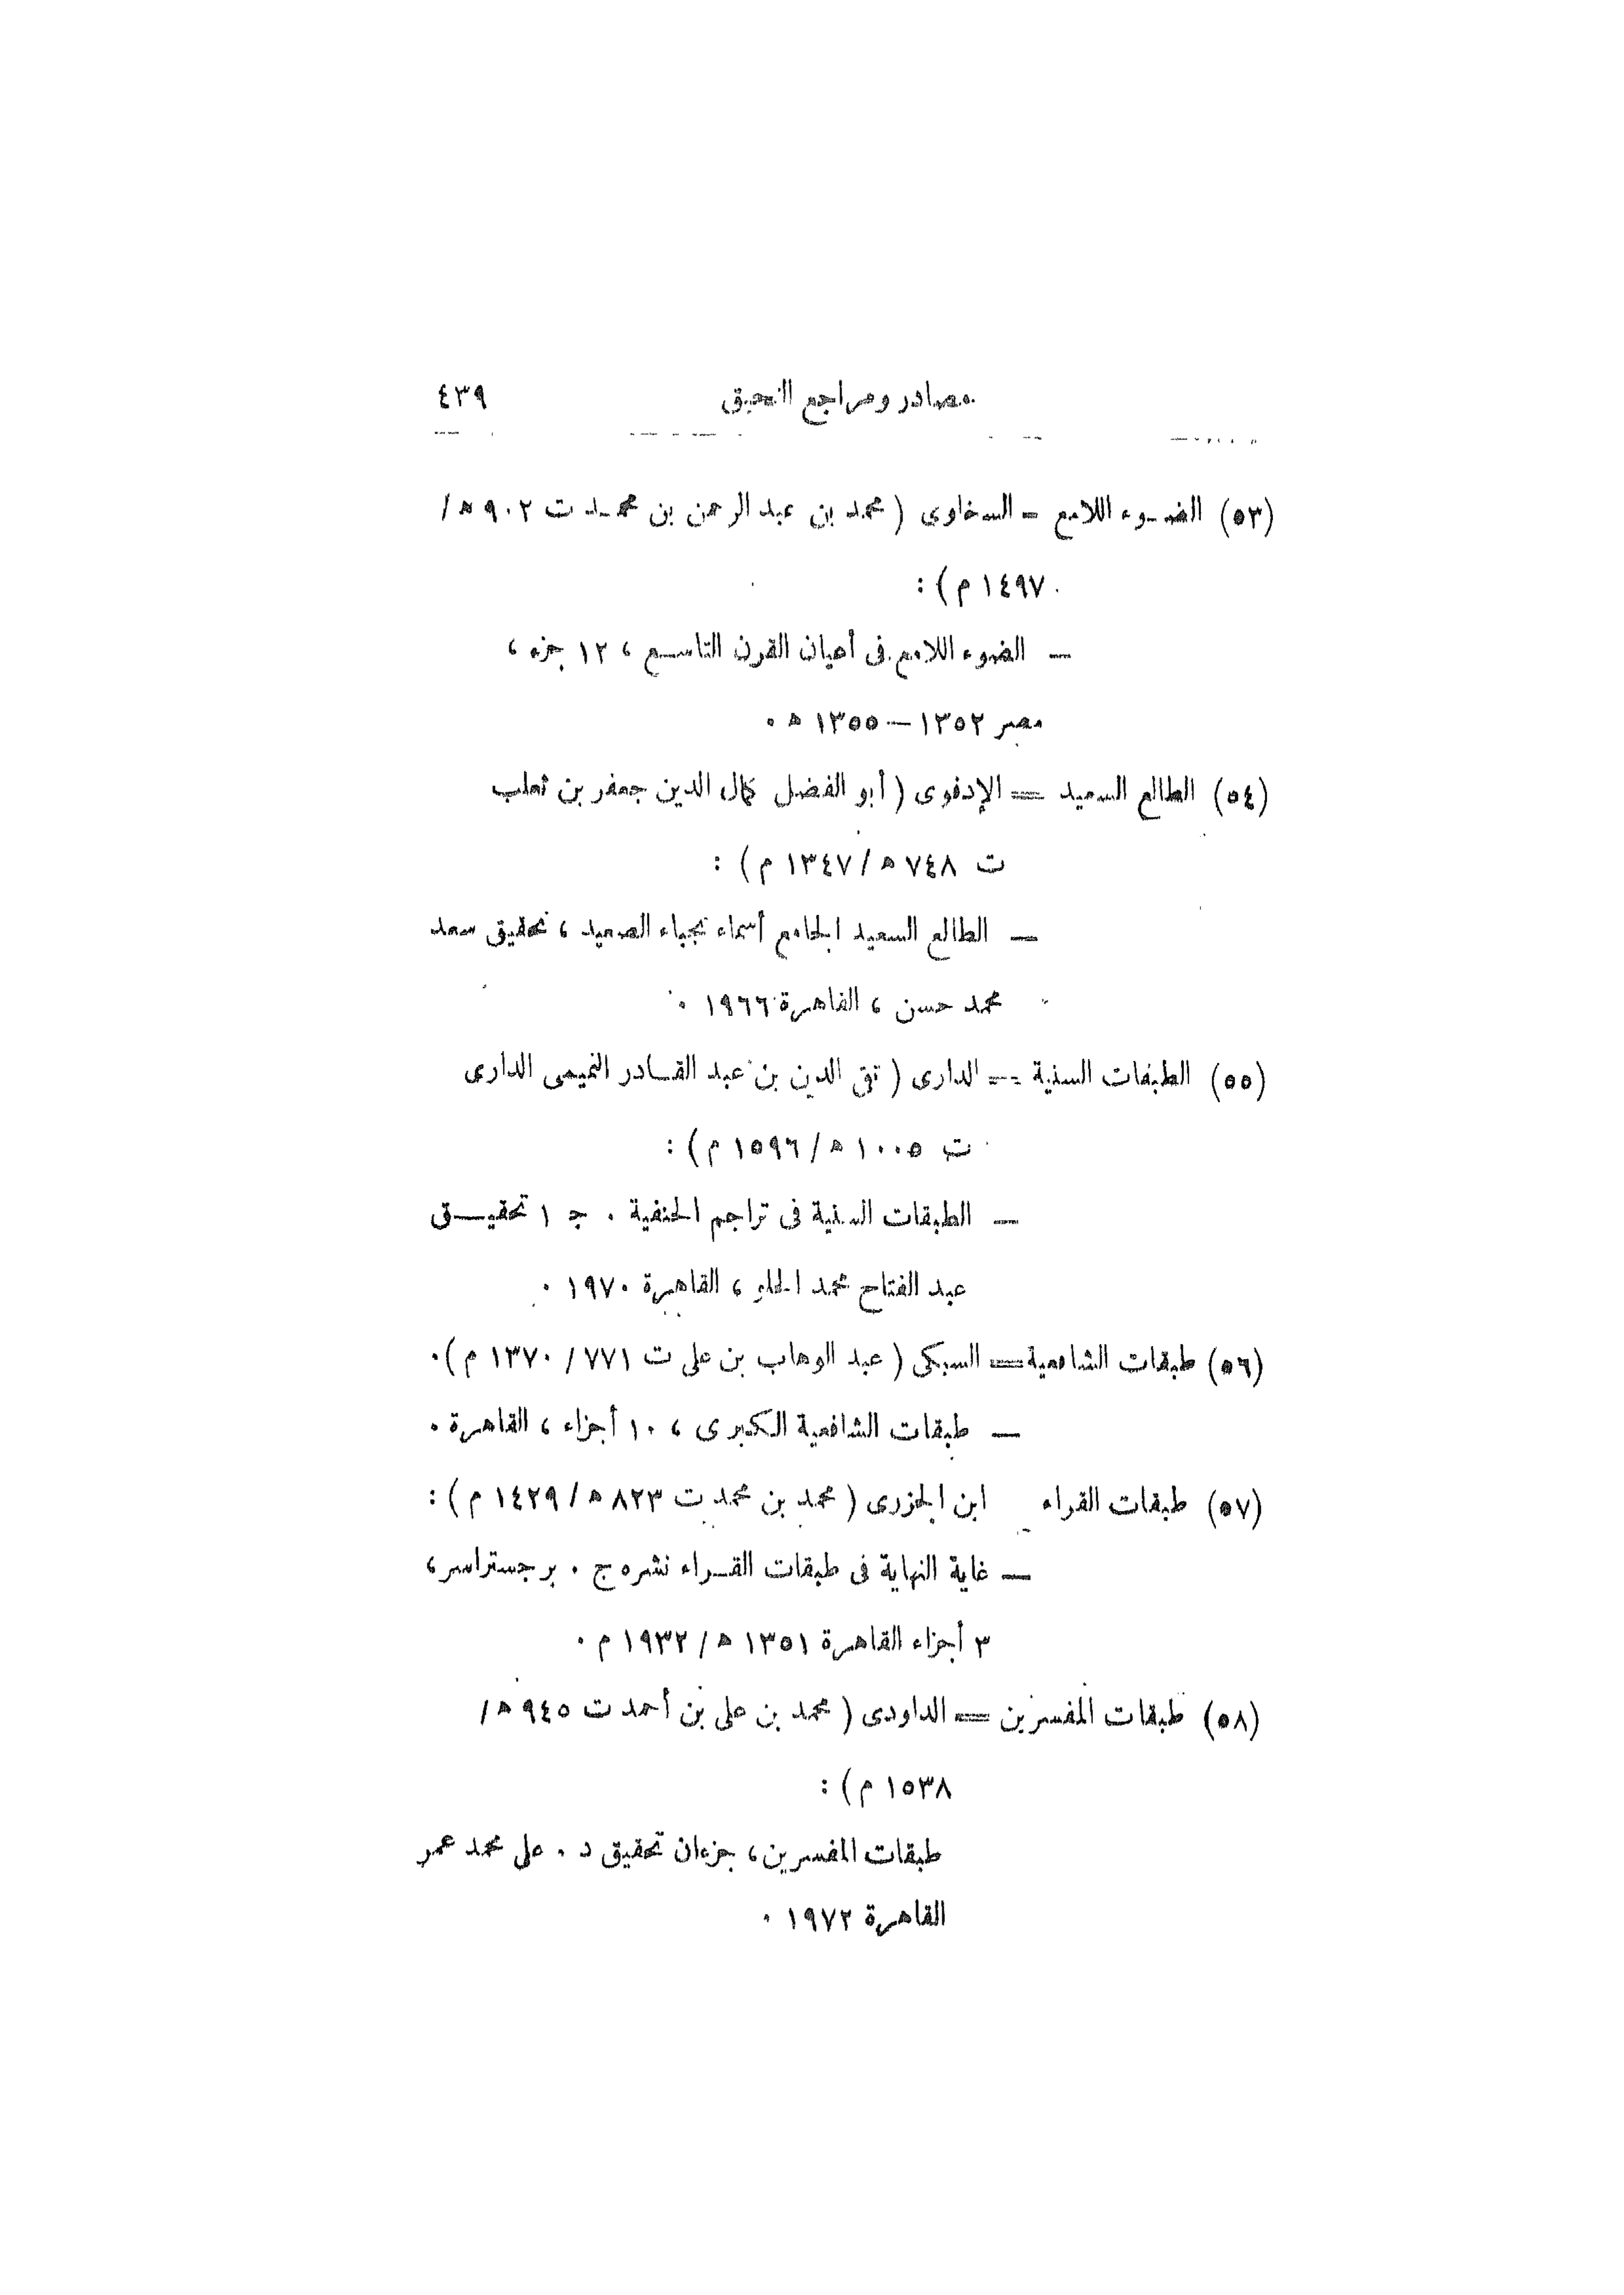 مصادر ومراجع التحقيق ٤٣٩
(٥٣) الضوء اللامع = السخاوى ( محمد بن عبد الرحمن بن محمد ت ٩٠٢ هـ/
١٤٩٧ م ) :
— الضوء اللامع فى أعيان القرن التاسع ، ١٢ جزء ،
مصر ١٣٥٢ — ١٣٥٥ هـ .
(٥٤) الطالع السعيد = الإدفوى ( أبو الفضل كمال الدين جعفر بن ثعلب
ت ٧٤٨ هـ/١٣٤٧ م ) :
— الطالع السعيد الجامع أسماء نجباء الصعيد ، تحقيق سعد
محمد حسن ، القاهرة ١٩٦٦ .
(٥٥) الطبقات السنية = الدارى ( تقى الدين بن عبد القادر التميمى الدارى
ت ١٠٠٥ هـ/١٥٩٦ م ) :
— الطبقات السنية فى تراجم الحنفية . جـ ١ تحقيق
عبد الفتاح محمد الحلو ، القاهرة ١٩٧٠ .
(٥٦) طبقات الشافعية = السبكى ( عبد الوهاب بن على ت ٧٧١/ ١٣٧٠ م ) .
— طبقات الشافعية الكبرى ، ١٠ أجزاء ، القاهرة .
(٥٧) طبقات القراء ابن الجزرى ( محمد بن محمد ت ٨٢٣ هـ/١٤٢٩ م ) :
— غاية النهاية فى طبقات القراء نشره ج . برجستراسر ،
٣ أجزاء القاهرة ١٣٥١ هـ/١٩٣٢ م .
(٥٨) طبقات المفسرين = الداودى ( محمد بن على بن أحمد ت ٩٤٥ هـ/
١٥٣٨ م ) :
طبقات المفسرين ، جزءان تحقيق د . على محمد عمر
القاهرة ١٩٧٢ .